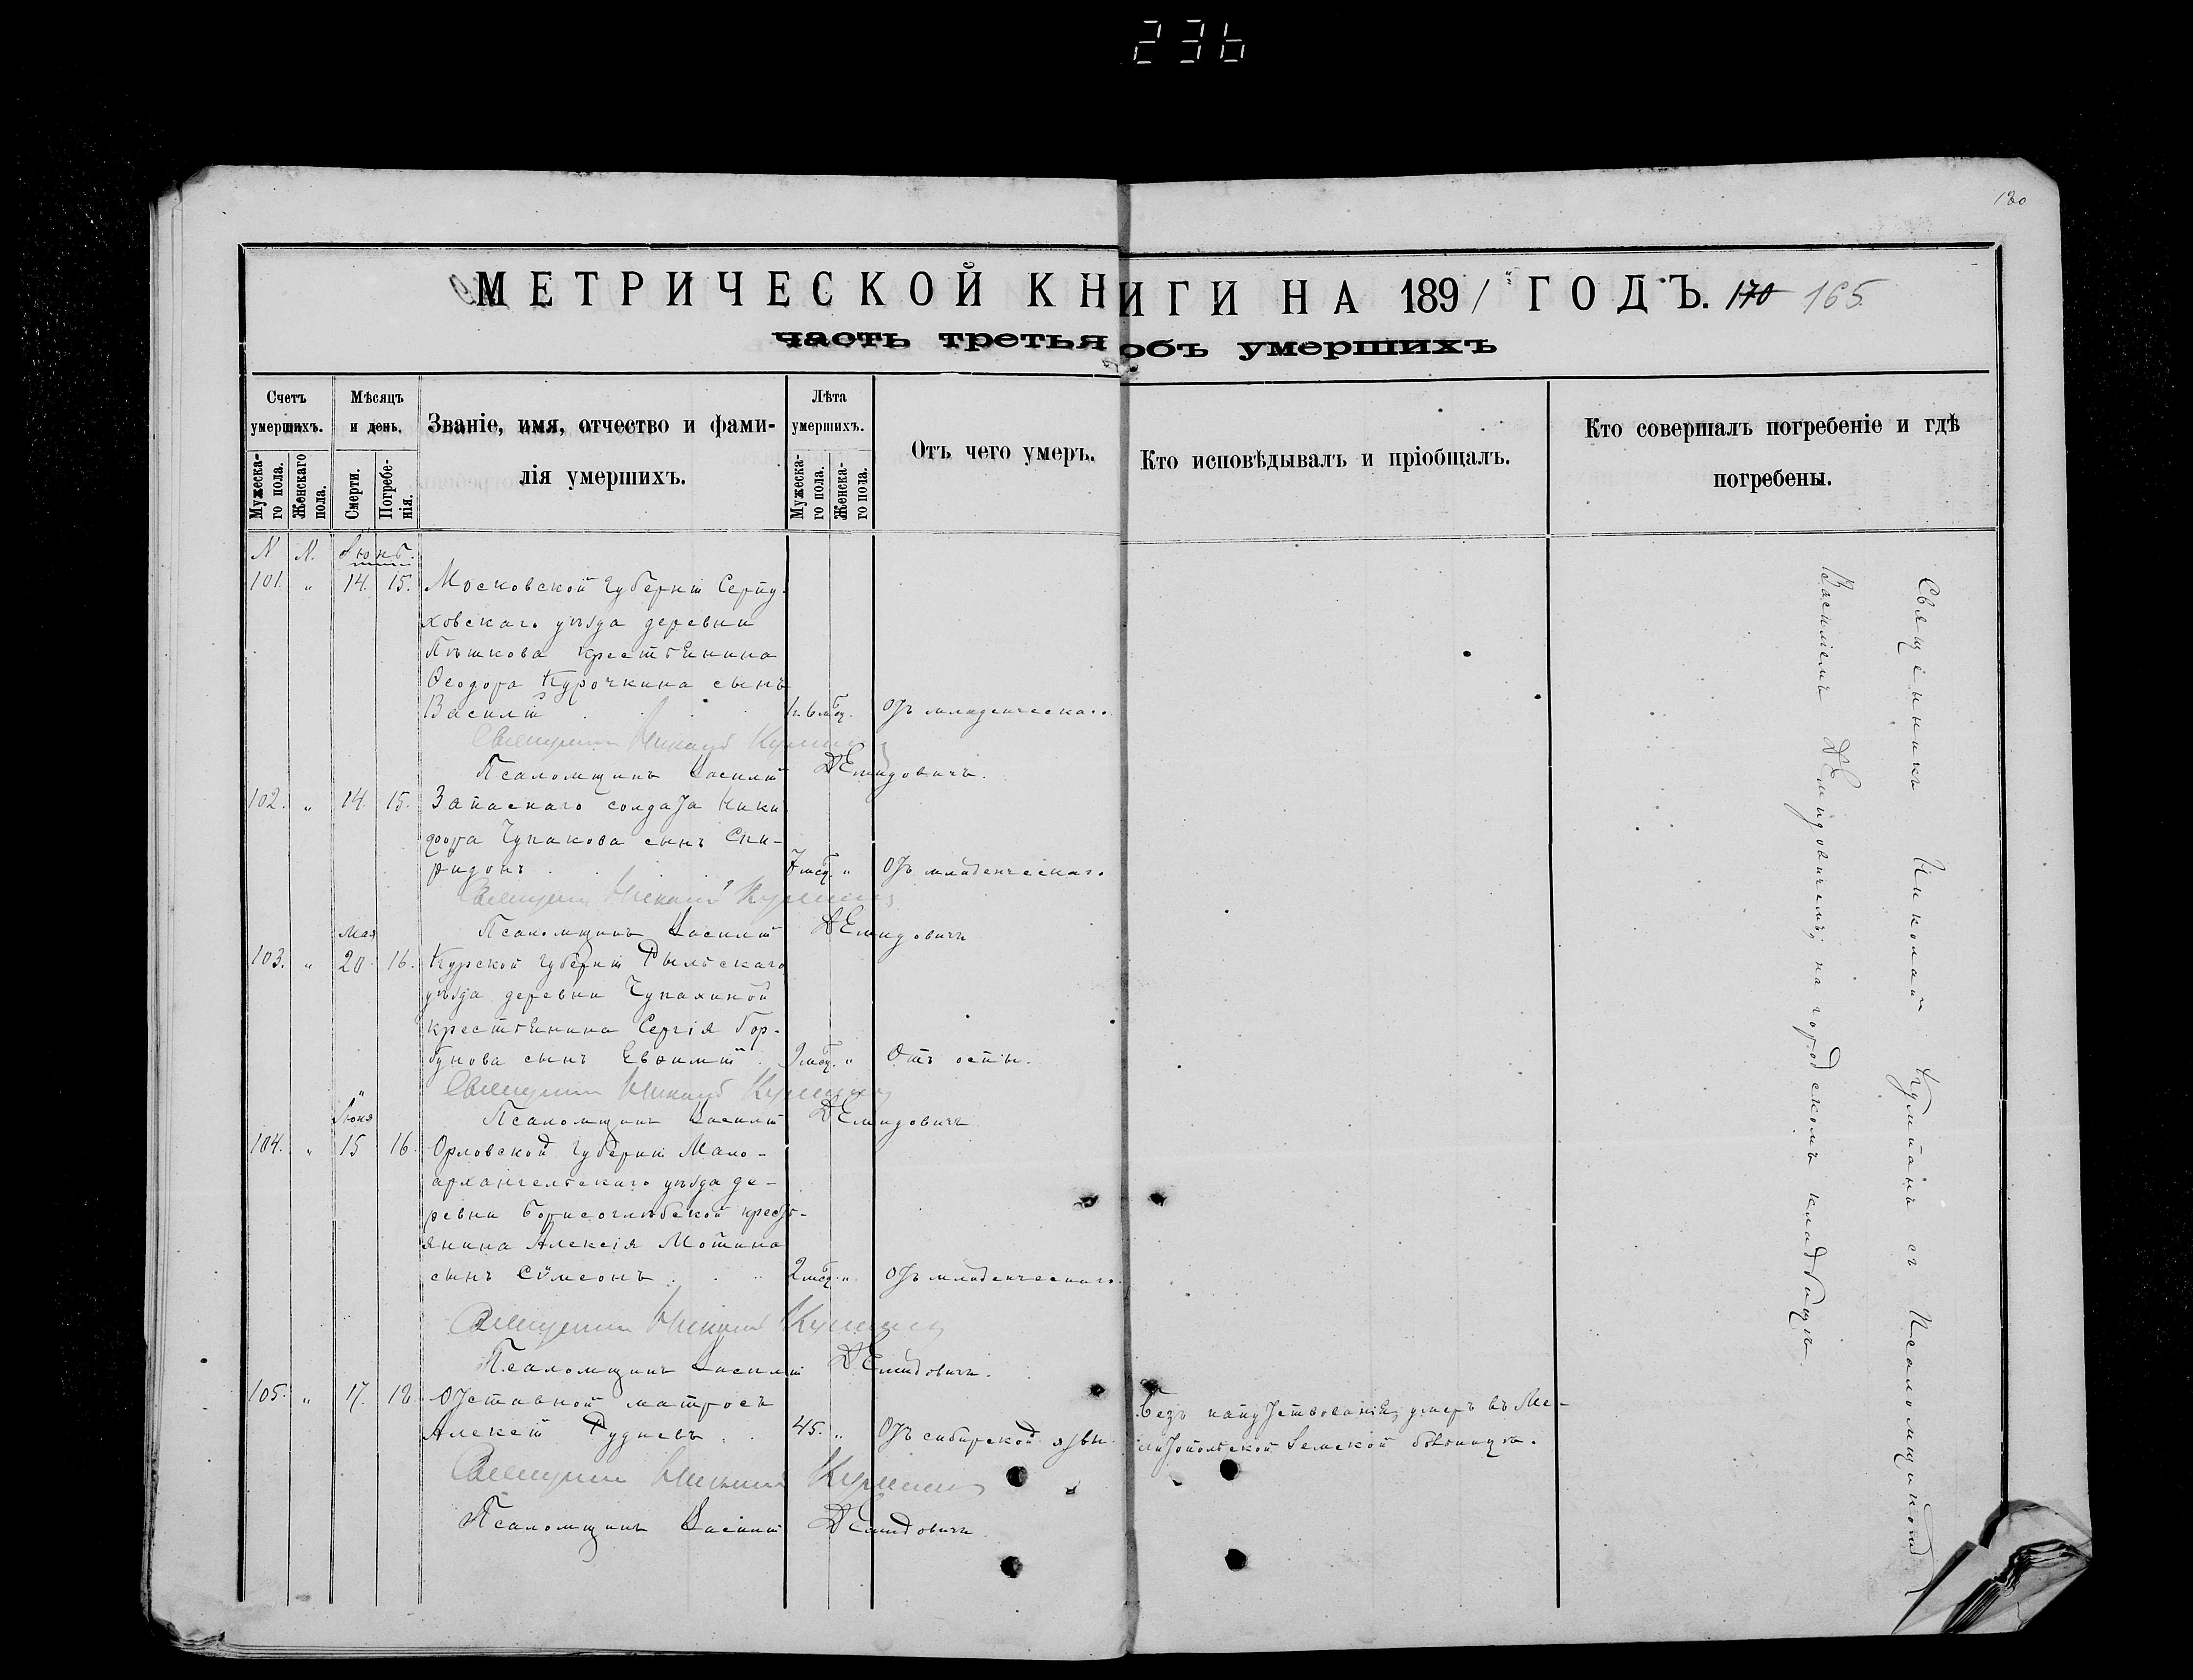 236
180
МЕТРИЧЕСКОЙ КНИГИ НА 1891 ГОДЪ. 170 165.
часть третья объ умершихъ
Счетъ умершихъ.
Мужеска-го пола.
Женскаго пола.
Мѣсяцъ и день.
Смерти.
Погребе-нія.
Званіе, имя, отчество и фами-
лія умершихъ.
Лѣта умершихъ.
Мужеска-го пола.
Женска-го пола.
Отъ чего умеръ.
Кто исповѣдывалъ и пріобщалъ.
Кто совершалъ погребеніе и гдѣ
погребены.
N N. Іюнь.
101. " 14. 15. Московской Губерніи Серпу-
ховскаго уѣзда деревни
крестьянина
Ѳеодора Курочкина сынъ
Василій Отъ младенческаго
Священникъ Николай
Псаломщикъ Василій Демидовичъ.
102. " 14. 15. Запаснаго солдата Ники-
фора Чупакова сынъ Спи-
ридонъ 7 мѣс. " Отъ младенческаго
Священникъ Николай
Псаломщикъ Василій Демидовичъ
Мая
103. " 20. 16. Курской Губерніи Рыльскаго
уѣзда деревни Чупахиной
крестьянина Сергія Гор-
бунова сынъ Евѳимій 9 мѣс. " Отъ оспы.
Священникъ Николай
Іюня Псаломщикъ Василій Демидовичъ
104. " 15 16. Орловской Губерніи Мало-
архангельскаго уѣзда де-
ревни Борисоглѣбской крест-
янина Алексія Мошина
сынъ Сѵмеонъ 2 мѣс. " Отъ младенческаго.
Священникъ Николай
Псаломщикъ Василій Демидовичъ.
105. " 17. 18. Отставной матросъ
Алексѣй Рудневъ 45. " Отъ сибирской язвы.
Безъ напутствованія, умеръ въ Ме-
литопольской Земской больницѣ.
Священникъ Николай
Псаломщикъ Василій Демидовичъ.
Священникъ Николай съ Псаломщикомъ
Василіемъ Демидовичемъ, на городскомъ кладбищѣ.